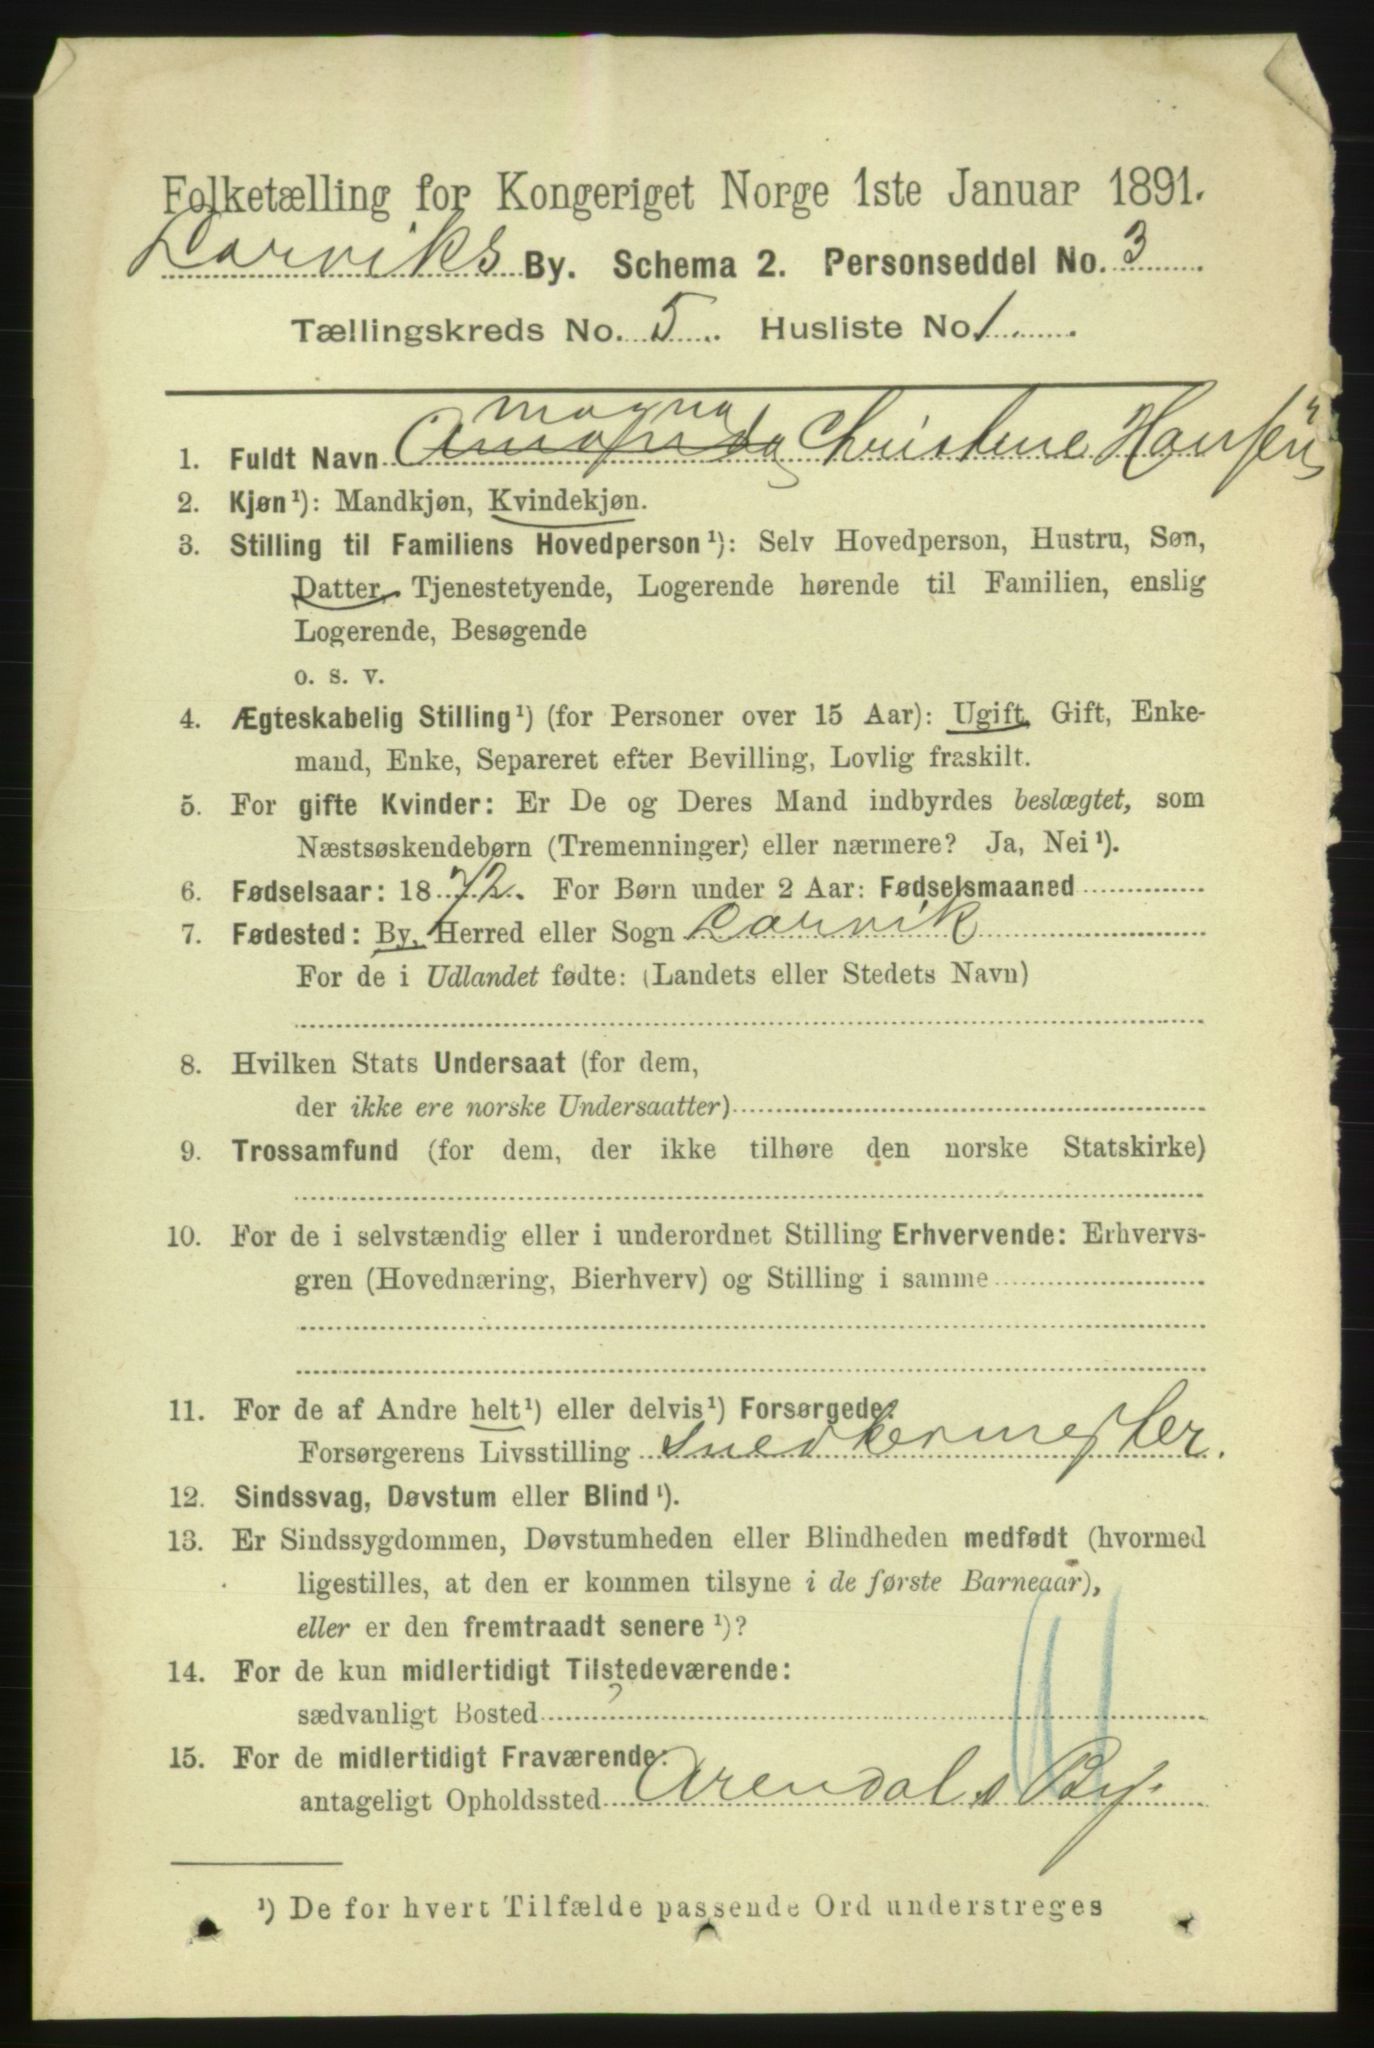 Folketælling for Kongeriget Norge 1ste Januar 1891.
Larviks By. Schema 2. Personseddel No. 3
Tællingskreds No. 5. Husliste No. 1.
Magna
1. Fuldt Navn Amanda Christine Hansen
2. Kjøn¹): Mandkjøn, Kvindekjøn.
3. Stilling til Familiens Hovedperson¹): Selv Hovedperson, Hustru, Søn,
Datter, Tjenestetyende, Logerende hørende til Familien, enslig
Logerende, Besøgende
o. s. v.
4. Ægteskabelig Stilling¹) (for Personer over 15 Aar): Ugift, Gift, Enke-
mand, Enke, Separeret efter Bevilling, Lovlig fraskilt.
5. For gifte Kvinder: Er De og Deres Mand indbyrdes beslægtet, som
Næstsøskendebørn (Tremenninger) eller nærmere? Ja, Nei¹).
6. Fødselsaar: 1872. For Børn under 2 Aar: Fødselsmaaned
7. Fødested: By, Herred eller Sogn Larvik
For de i Udlandet fødte: (Landets eller Stedets Navn)
8. Hvilken Stats Undersaat (for dem,
der ikke ere norske Undersaatter)
9. Trossamfund (for dem, der ikke tilhøre den norske Statskirke)
10. For de i selvstændig eller i underordnet Stilling Erhvervende: Erhvervs-
gren (Hovednæring, Bierhverv) og Stilling i samme
11. For de af Andre helt¹) eller delvis¹) Forsørgede:
Forsørgerens Livsstilling Snedkermester.
12. Sindssvag, Døvstum eller Blind¹).
13. Er Sindssygdommen, Døvstumheden eller Blindheden medfødt (hvormed
ligestilles, at den er kommen tilsyne i de første Barneaar),
eller er den fremtraadt senere¹)?
14. For de kun midlertidigt Tilstedeværende:
sædvanligt Bosted
15. For de midlertidigt Fraværende:
antageligt Opholdssted Arendals By.
¹) De for hvert Tilfælde passende Ord understreges